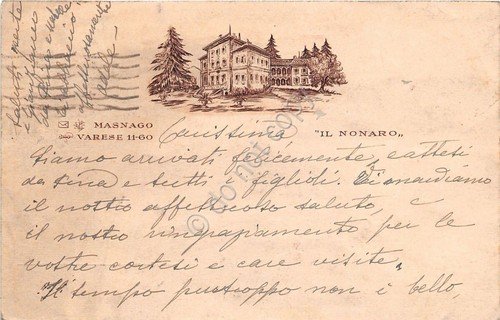 MASNAGO
VARESE 11-60
"IL NONARO„
Carissima
Siamo arrivati felicemente, e attesi
da Gina e tutti i figlioli. Vi mandiamo
il nostro affettuoso saluto, e
il nostro ringraziamento per le
vostre cortesi e care visite„
Il tempo purtroppo non è bello,
Saluti
affettuosamente